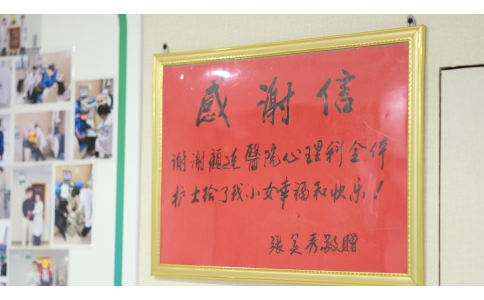 感谢信
谢谢顾连醫院心理科全体
护士给了我小女幸福和快乐！
张美秀敬贈